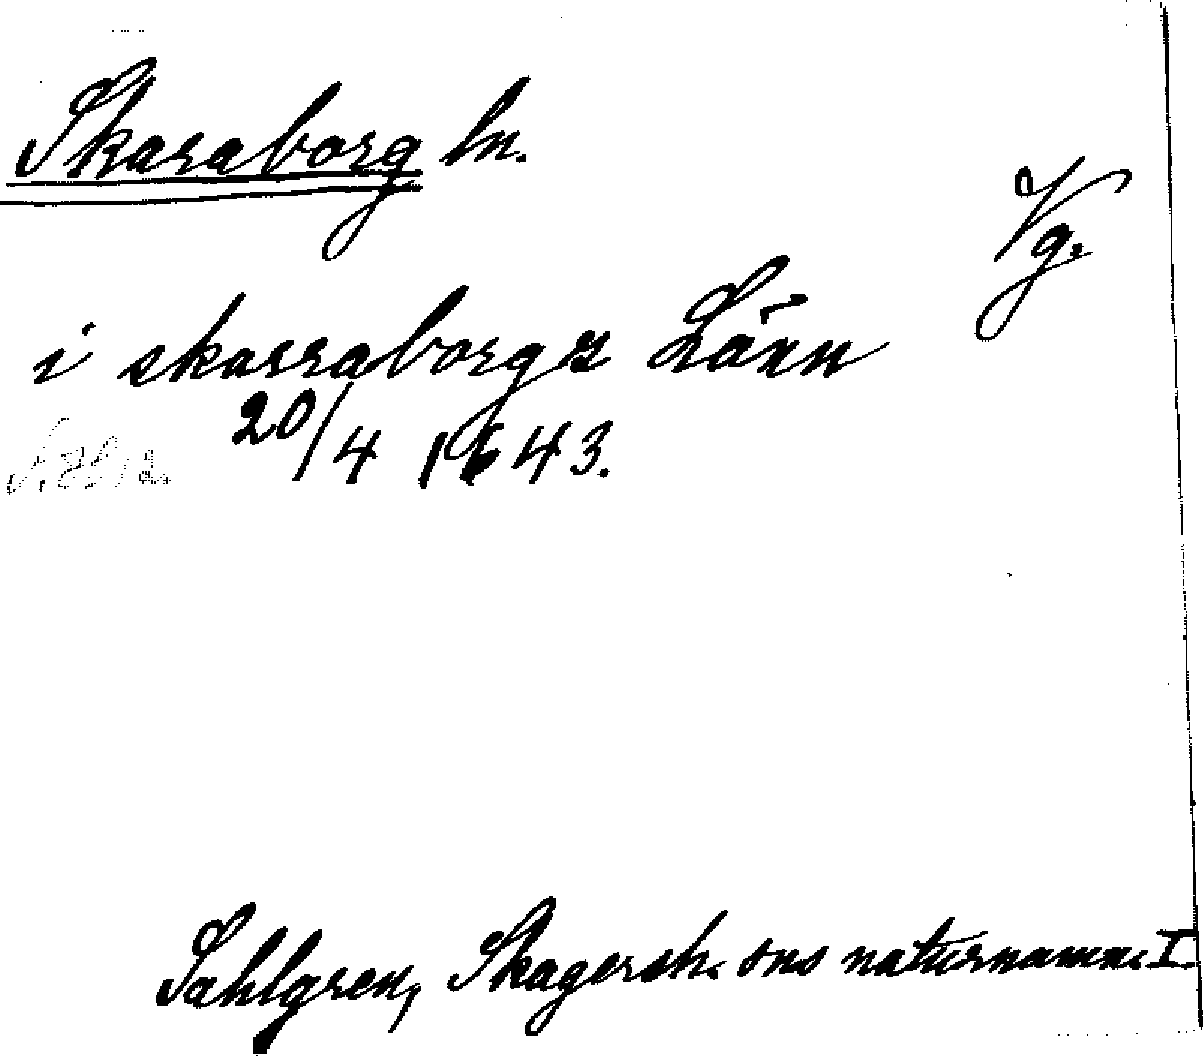 Skaraborg ln.
Vg.
i skarraborgz Länn
20/4 1643.
Sahlgren, Skagersh. sns naturnamn. I